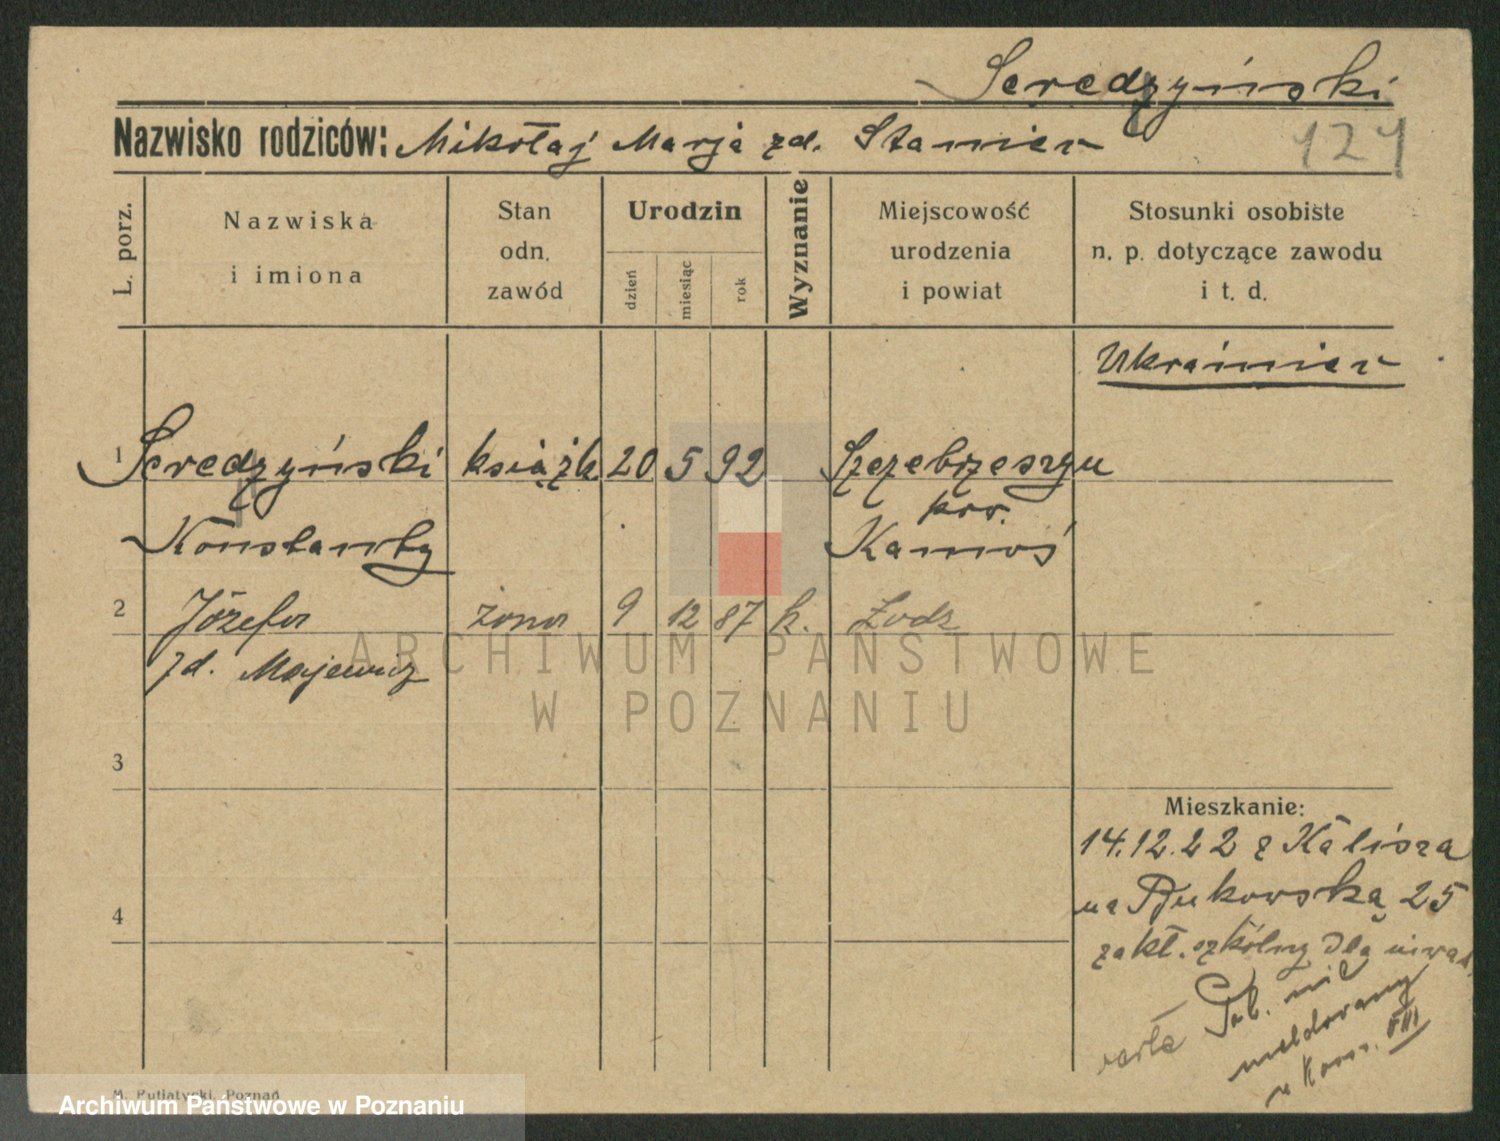 Seredzyński
Nazwisko rodziców: Mikołaj Marja zd. Stanier
121
L. porz.
Nazwiska i imiona
Stan odn. zawód
Urodzin
dzień miesiąc rok
Wyznanie
Miejscowość urodzenia i powiat
Stosunki osobiste n. p. dotyczące zawodu i t. d.
Ukrainier
1 Seredzyński książk 20 5 92 Szczebrzeszyn
pow.
Konstanty Zamość
2 Józefa żona 9 12 87 k. Łodz
zd. Majewicz
3
4
Mieszkanie:
14.12.22 z Kalisza
na Bukowską 25
zakł. szkólny dla inwal.
nie
meldowany
w Kom. VIII
M. Putiatycki, Poznań
ARCHIWUM PAŃSTWOWE
W POZNANIU
Archiwum Państwowe w Poznaniu